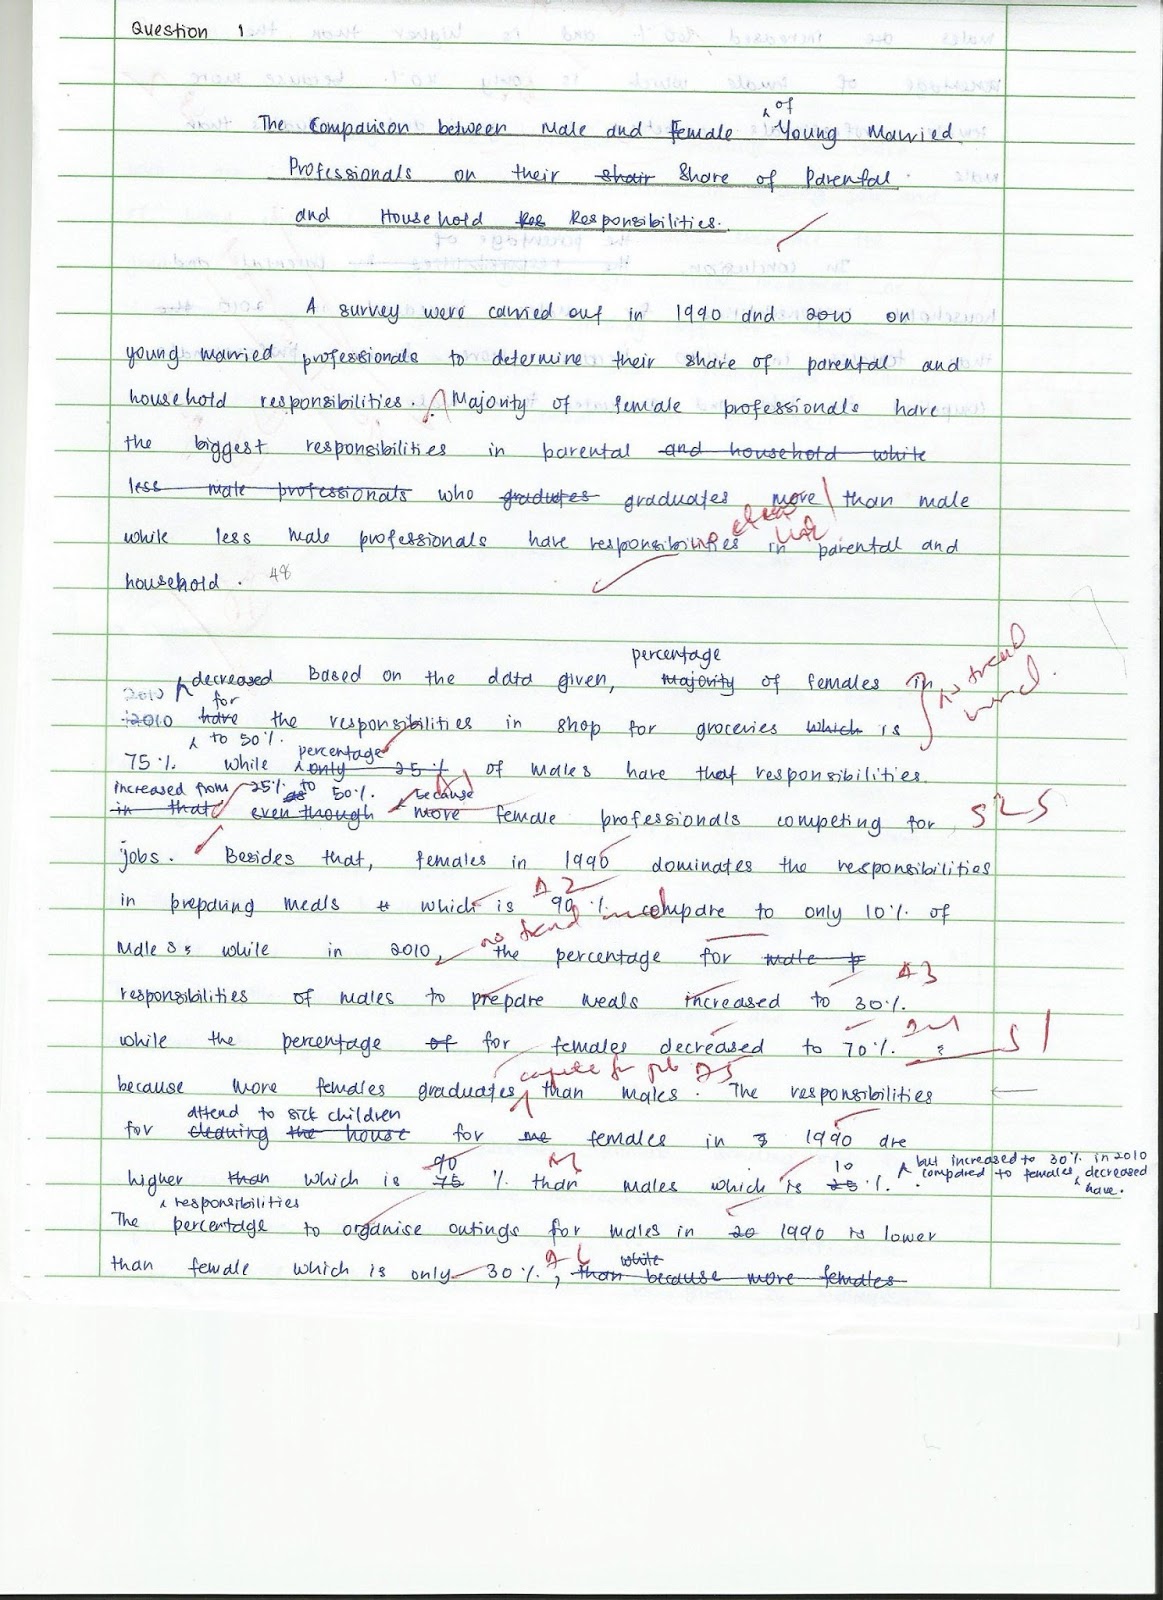 Question 1
of
The Comparison between Male and Female Young Married
Professionals on their shair Share of Parental
and Household Res Responsibilities.
A survey were carried out in 1990 and 2010 on
young married professionals to determine their share of parental and
household responsibilities. Majority of female professionals have
the biggest responsibilities in parental and household while
less male professionals who gradutes graduates more than male
while less male professionals have responsibilities in parental and
household. 48
percentage
2010 decreased Based on the data given, Majority of females in
no trend
for
2010 have the responsibilities in shop for groceries which is
to 50%. percentage
75% while only 25% of males have that responsibilities.
increased from 25% to 50%. because
in that even though more female professionals competing for
S2 5
jobs. Besides that, females in 1990 dominates the responsibilities
A2
in preparing meals which is 90% compare to only 10% of
no trend
males, while in 2010, the percentage for male
A3
responsibilities of males to prepare meals increased to 30%.
while the percentage of for females decreased to 70%.
S1
compete for job A5
because more females graduates than males. The responsibilities
attend to sick children
for cleaning the house for females in 1990 are
90 10 but increased to 30% in 2010
higher than which is 75% than males which is 25%. compared to females decreased
have.
responsibilities
The percentage to organise outings for males in 20 1990 is lower
A6 while
than female which is only 30%, than because more females